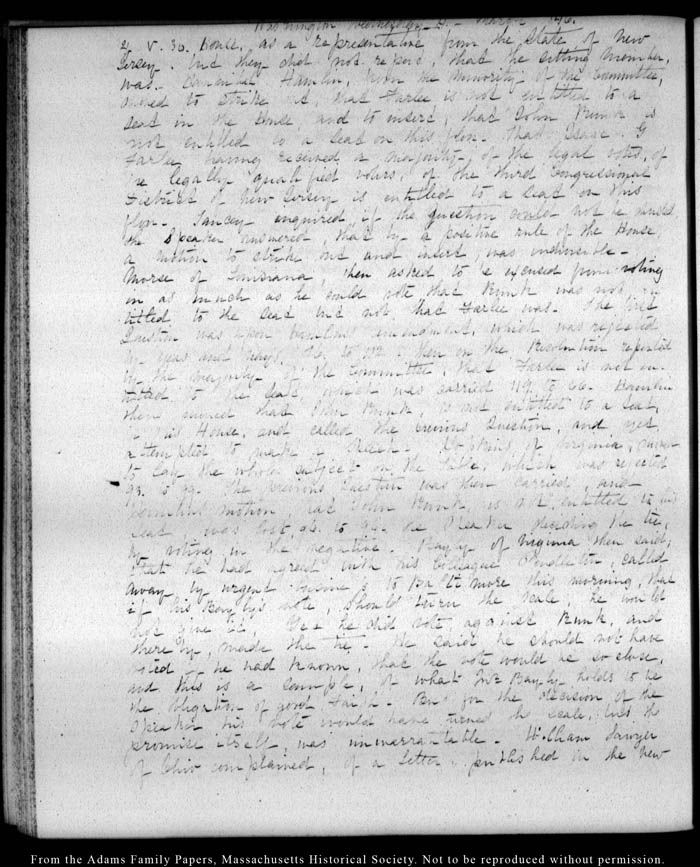 Washington Wednesday 4. March 1846.
4. V. 30. House, as a representative from the State of New
Jersey. And they did not report, that the sitting member,
was. Hannibal Hamlin, from the minority of the Committee,
moved to strike out, that Farlee is not entitled to a
seat in the House, and to insert, that John Runk is
not entitled to a seat on this floor. That Isaac G
Farlee having received a majority of the legal votes, of
the legally qualified voters, of the third Congressional
District of New Jersey is entitled to a seat on this
floor. Yancey enquired, if the question could not be divided,
the Speaker answered, that by a positive rule of the House,
a motion to strike out and insert, was indivisible.
Morse of Louisiana, then asked to be excused from voting
in as much as he could vote that Runk was not en-
titled to the seat but not, that Farlee was. The first
Question was upon Hamlin's amendment, which was rejected
by yeas and nays, to 112. then on the Resolution reported
by the majority of the Committee, that Farlee is not en-
titled to the seat, which was carried 119 to 66. Hamlin
then moved that John Runk, is not entitled to a seat,
in this House, and called the previous Question, and
attempted to make a Speech. Hopkins of Virginia, moved
to lay the whole subject on the table, which was rejected
93. to 99. The previous Question was then carried, and
Hamlin's motion, that John Runk, is not entitled to his
seat, was lost, 96. to 96. the Speaker deciding the tie,
by voting in the negative. Bayly of Virginia then said,
that he had agreed with his Colleague Pendleton, called
away by urgent business to Baltimore this morning, that
if his Bayly's vote should turn the scale he would
not give it. Yet he did vote, against Runk, and
thereby, made the tie. He said he should not have
voted if he had known, that the vote would be so close,
and this is a sample, of what Mr Bayly holds to be
the obligation of good faith. But for the decision of the
Speaker his vote would have turned the scale, but the
promise itself, was unwarrantable. William Sawyer
of Ohio complained, of a letter published in the New
From the Adams Family Papers, Massachusetts Historical Society. Not to be reproduced without permission.